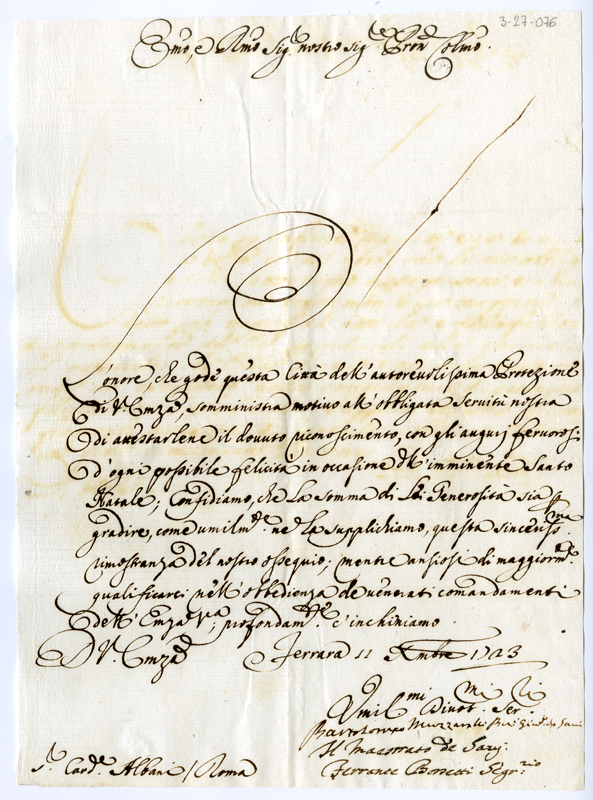 3-27-076
Emo, e Rmo Sig.r nostro Sig.r e Pron Colmo.
L'onore, che gode questa Città dell'autorevolissima Protezione
di V.a Emza, somministra motivo all'obbligata Servitù nostra
di attestarlene il dovuto riconoscimento, con gli augurj fervorosi
d'ogni possibile felicità in occasione dell'imminente Santo
Natale; Confidiamo, che la somma di Lei Generosità sia
gradire, come umilm.te ne la supplichiamo, questa sinceriss.ma
rimostranza del nostro ossequio; mentre ansiosi di maggiorm.te
qualificarci nell'obbedienza de venerati comandamenti
dell'Emza V.a, profondam.te c'inchiniamo.
D V.a Emza Ferrara 11 Xmbre 1723
Umil.mi Divot.mi Ser.ri
Bartolomeo Muzzarelli
Il Maestrato de Savj.
Ferrante Borsetti Segr.rio
S.r Card.e Albani / Roma